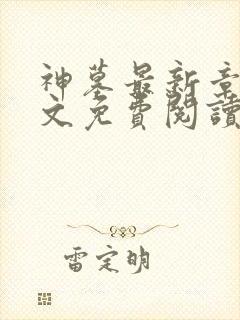 神墓最新章
文免費閱讀
雷定明